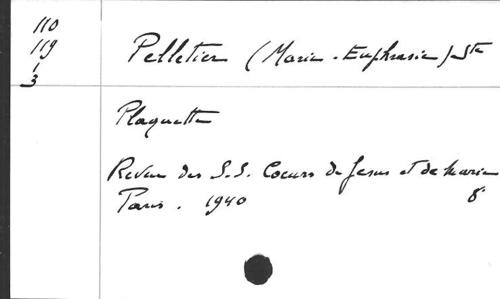 110
119
1
3
Pelletier (Marie-Euphrasie) Ste
Plaquette
Revue des S.S. Coeurs de Jesus et de Marie
Paris. 1940 8°